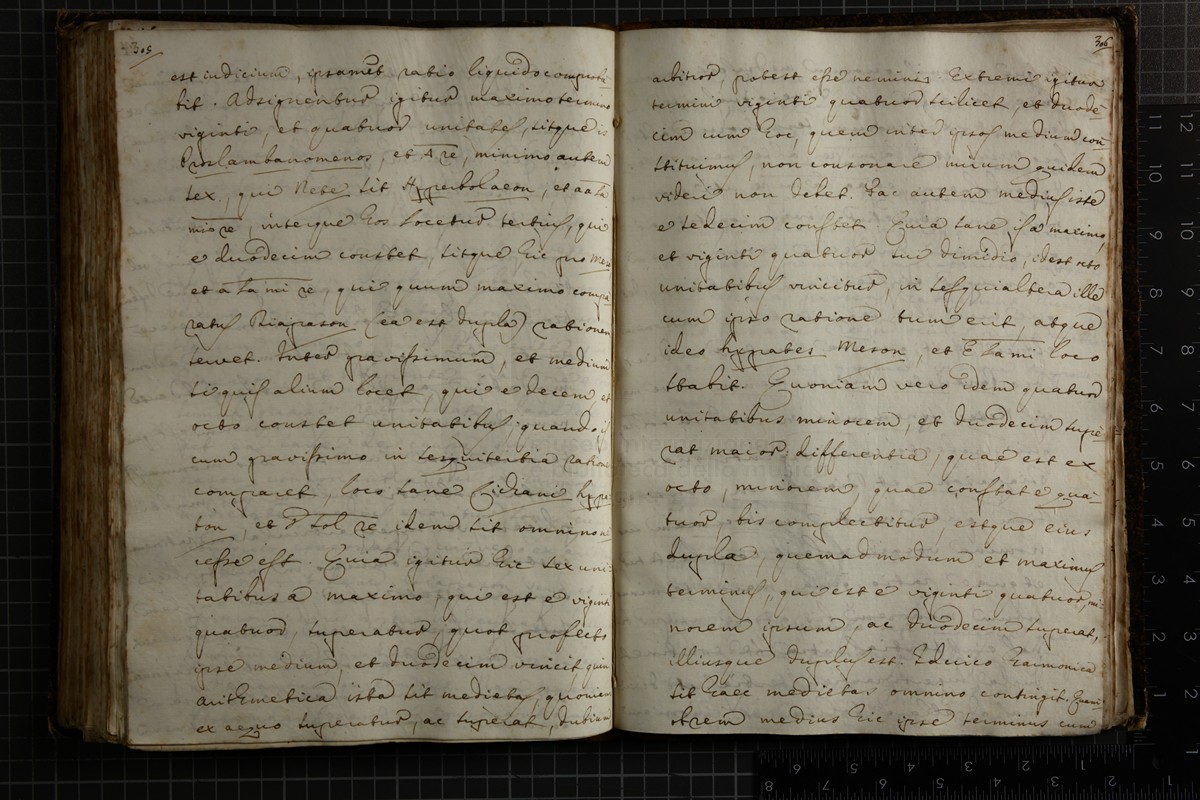 305
est iudicium, ipsamet ratio liquido comproba
bit. Adsignentur igitur maximo termino
viginti, et quatuor unitates, sitque is
Proslambanomenos, et A re, minimo autem
sex, qui Nete sit Hyperbolaeon, et aa la
mi re, interque hos locetur tertius, qui
e duodecim constet, sitque hic pro Mese
et a la mi re, qui quum maximo compa
ratus Diapason (ea est dupla) rationem
servet. Inter gravissimum, et medium
si quis alium locet, qui e decem et
octo constet unitatibus, quando is
cum gravissimo in sesquitertia ratione
comparet, loco sane Lichani hypa
ton, et D sol re idem sit omnino ne
cesse est. Quia igitur hic sex uni
tatibus a maximo, qui est e viginti
quatuor, superatur, quot profecto
ipse medium, et duodecim vincit, quin
arithmetica ista sit medietas, quoniam
ex aequo superatur, ac superat, dubium
306
arbitror, potest esse nemini. Extremi igitur
termini viginti quatuor scilicet, et duode
cim cum hoc, quem inter ipsos medium con
stituimus, non consonare mirum quidem
videri non debet. Fac autem medius iste
e sedecim constet. Quia sane is a maximo,
et viginti quatuor sui dimidio, idest octo
unitatibus vincitur, in sesquialtera ille
cum ipso ratione tum erit, atque
ideo hypates Meson, et E la mi loco
stabit. Quoniam vero idem quatuor
unitatibus minorem, et duodecim supe
rat maior differentia, quae est ex
octo, minorem, quae constat e qua
tuor, bis complectitur, estque eius
dupla, quemadmodum et maximus
terminus, qui est e viginti quatuor, mi
norem ipsum, ac duodecim superat,
illiusque duplus est. Eduico harmonica
sit haec medietas omnino contingit. Quam
obrem medius hic ipse terminus cum